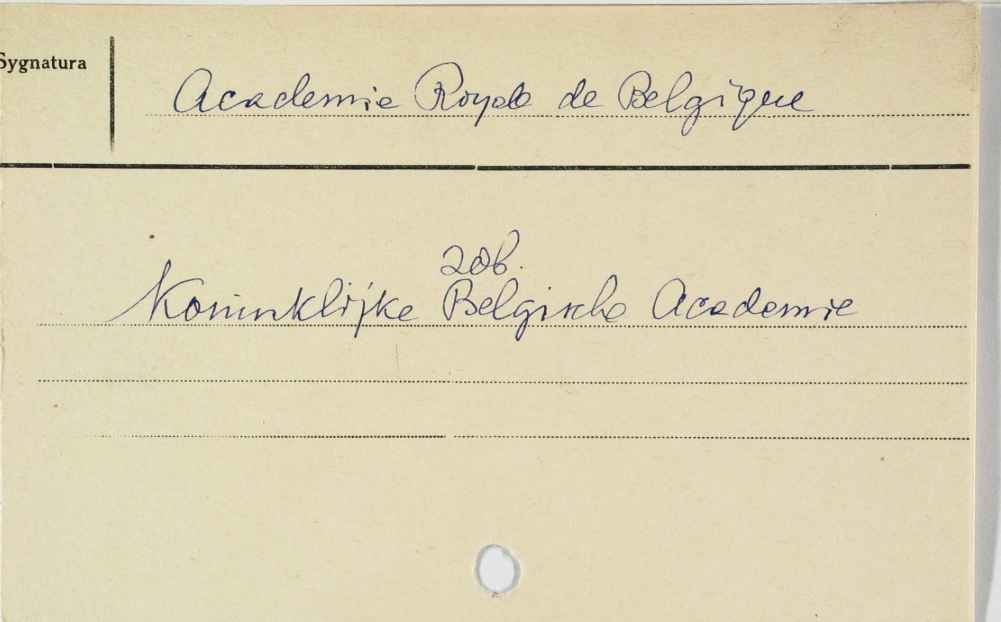 Sygnatura
Academie Royale de Belgique
zob.
Koninklijke Belgische Academie